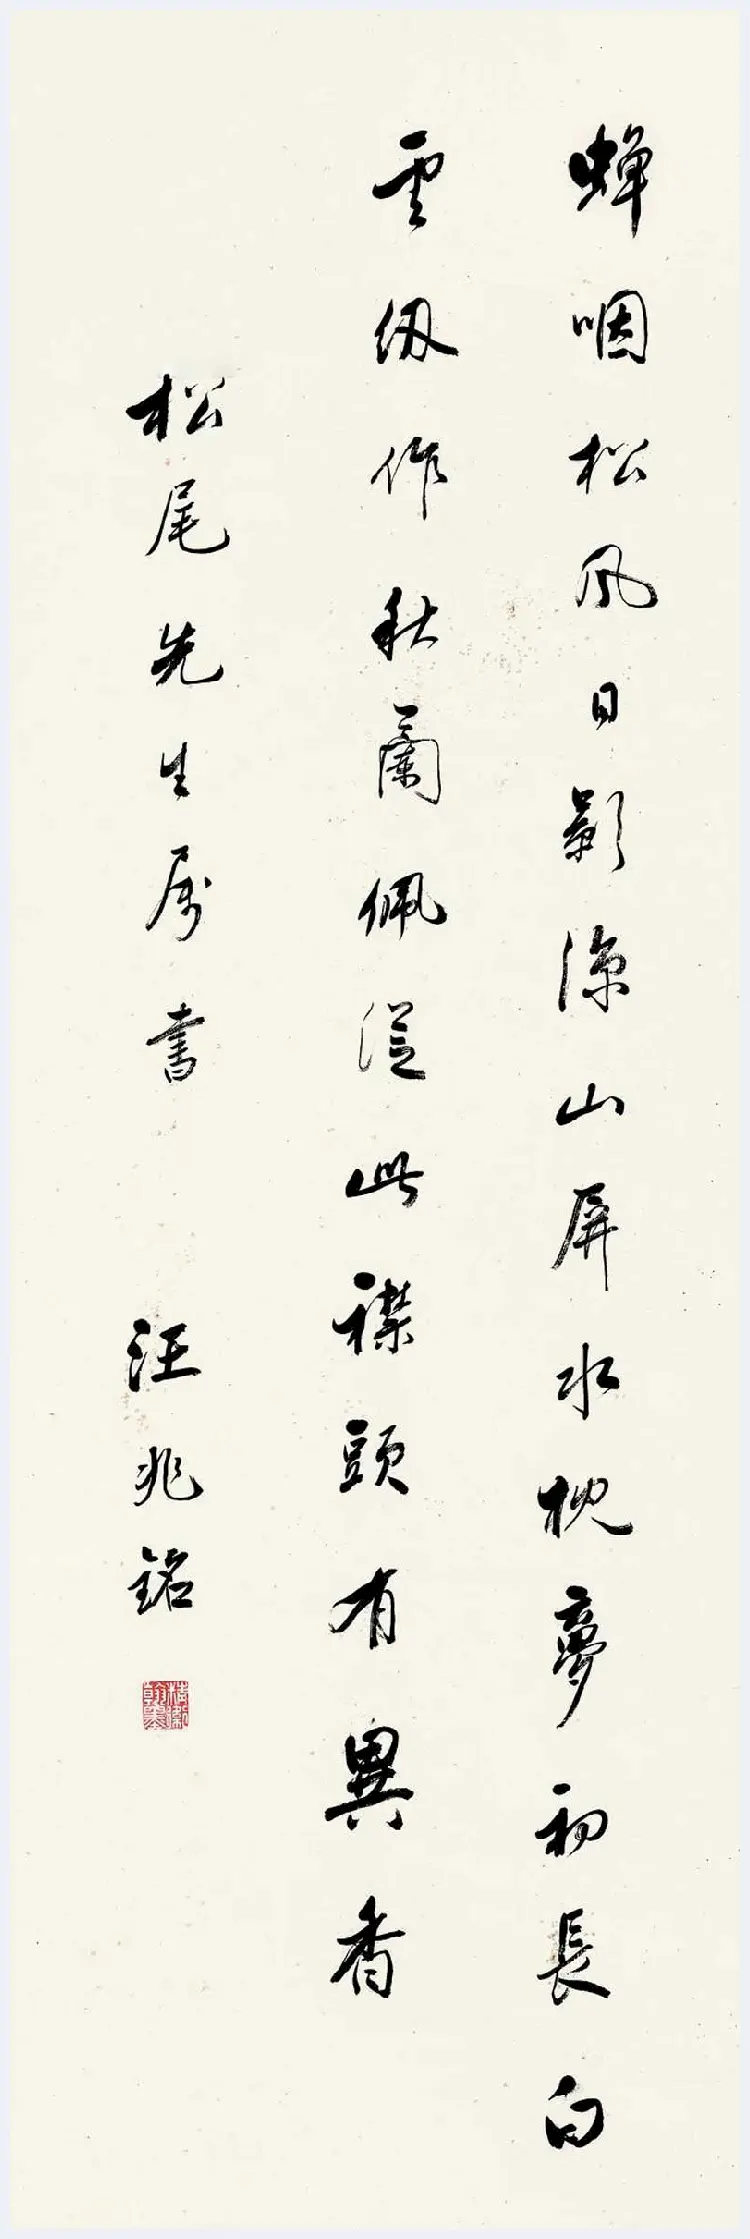 蟬咽松風日影涼山屏水枕夢初長白
雲紉作秋蘭佩從此襟頭有異香
松尾先生屬書 汪兆銘